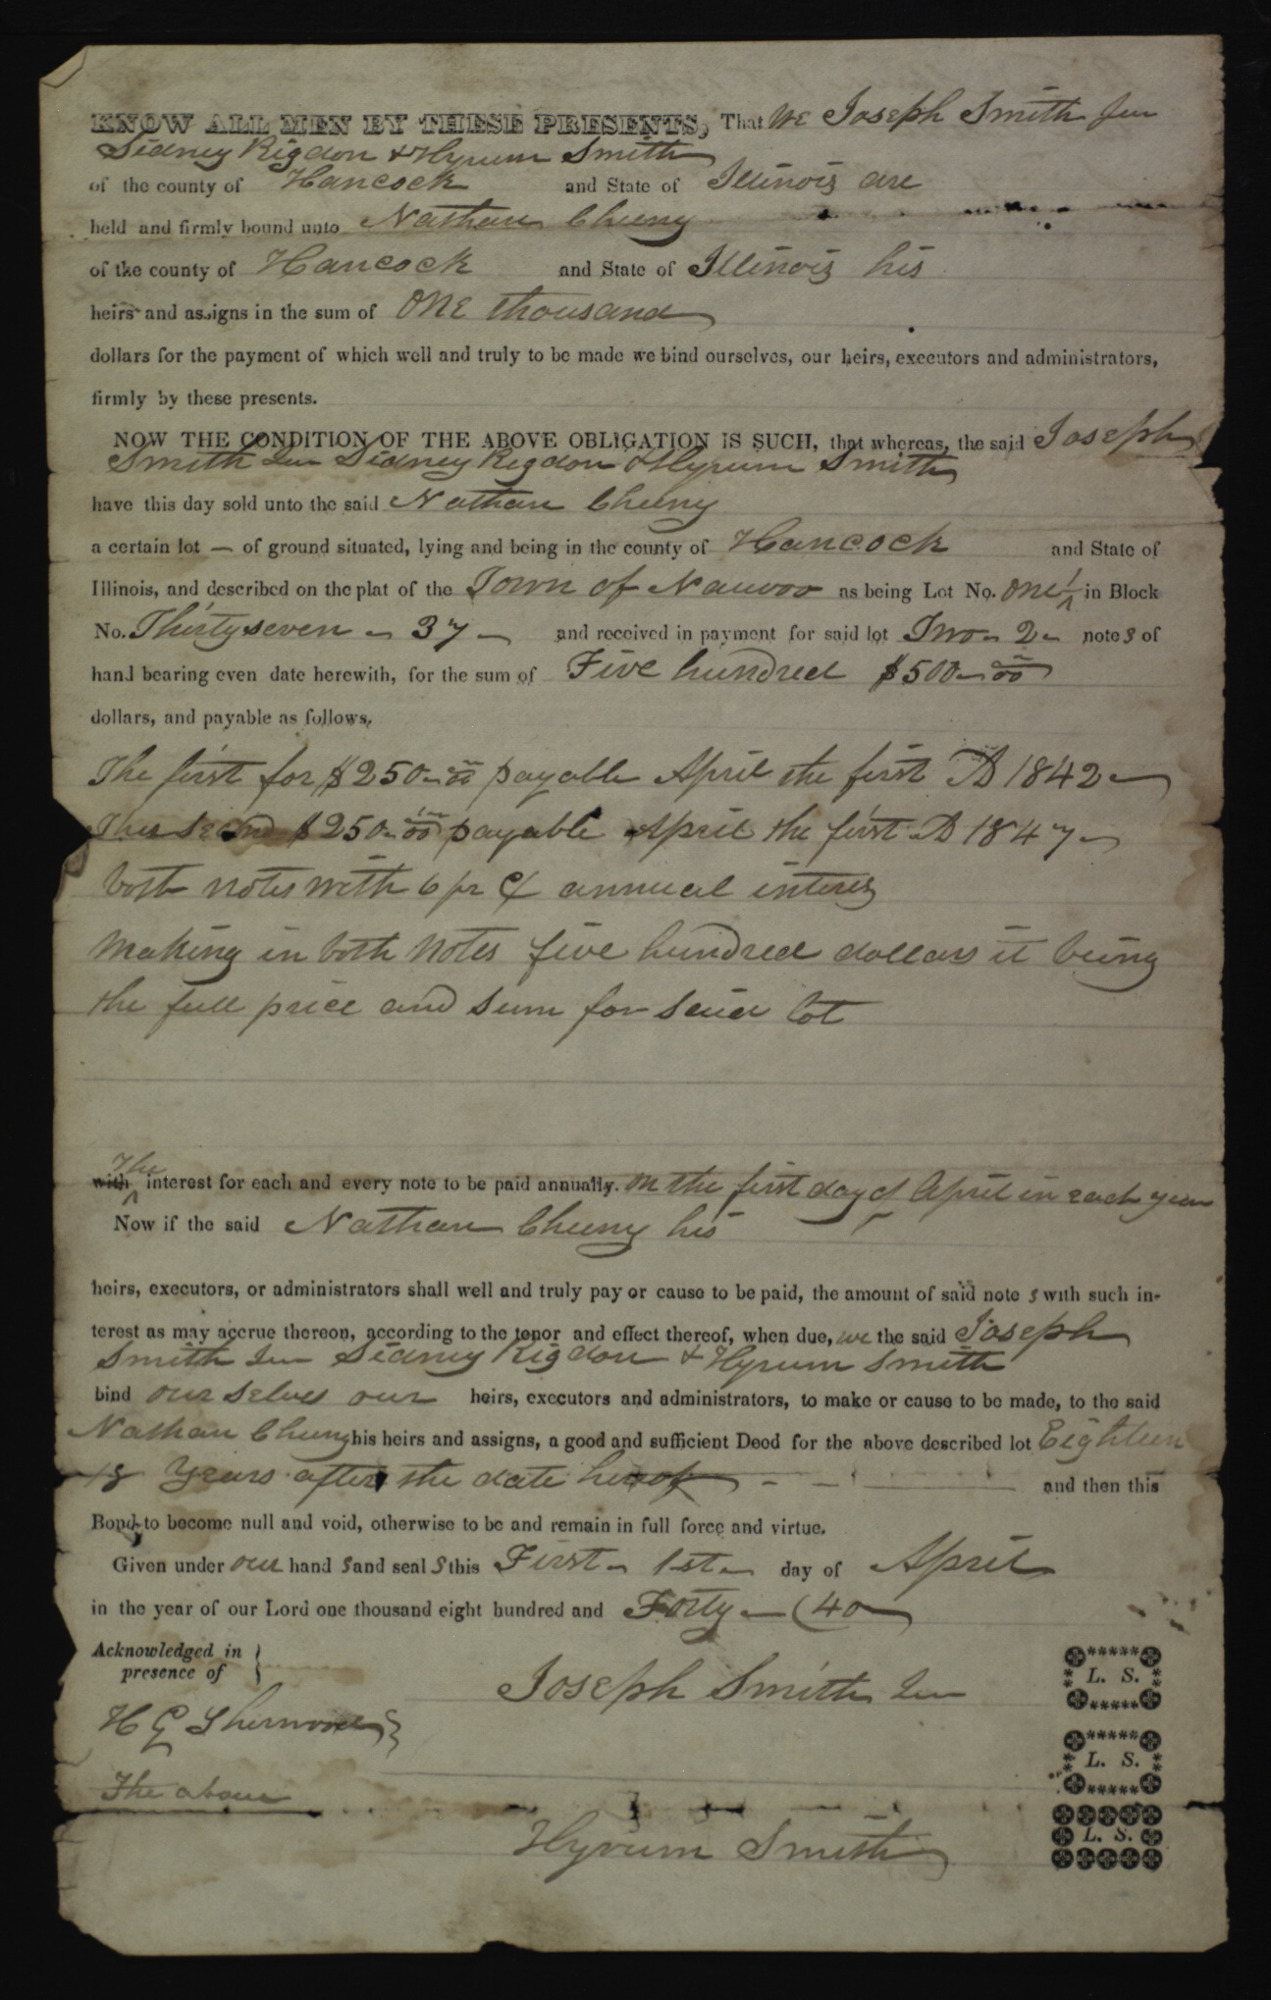 KNOW ALL MEN BY THESE PRESENTS, That we Joseph Smith Jun
Sidney Rigdon & Hyrum Smith
of the county of Hancock and State of Illinois are
held and firmly bound unto Nathan Cheeny
of the county of Hancock and State of Illinois his
heirs and assigns in the sum of One thousand
dollars for the payment of which well and truly to be made we bind ourselves, our heirs, executors and administrators,
firmly by these presents.
NOW THE CONDITION OF THE ABOVE OBLIGATION IS SUCH, that whereas, the said Joseph
Smith Jun Sidney Rigdon & Hyrum Smith
have this day sold unto the said Nathan Cheeny
a certain lot — of ground situated, lying and being in the county of Hancock and State of
Illinois, and described on the plat of the Town of Nauvoo as being Lot No. one 1 in Block
No. Thirty seven - 37 - and received in payment for said lot Two - 2 - notes of
hand bearing even date herewith, for the sum of Five hundred $500-00
dollars, and payable as follows,
The first for $250-00 payable April the first AD 1842 -
The second $250-00 payable April the first AD 1847 -
both notes with 6 pr ct annual interes
making in both notes five hundred dollars it being
the full price and sum for said lot
with The interest for each and every note to be paid annually. on the first day of April in each year
Now if the said Nathan Cheeny his
heirs, executors, or administrators shall well and truly pay or cause to be paid, the amount of said note s with such in-
terest as may accrue thereon, according to the tenor and effect thereof, when due, we the said Joseph
Smith Jun Sidney Rigdon & Hyrum Smith
bind our selves our heirs, executors and administrators, to make or cause to be made, to the said
Nathan Cheeny his heirs and assigns, a good and sufficient Deed for the above described lot Eighteen
18 Years after the date hereof - - - and then this
Bond to become null and void, otherwise to be and remain in full force and virtue.
Given under our hand s and seal s this First - 1st - day of April
in the year of our Lord one thousand eight hundred and Forty - (40
Acknowledged in
presence of }
Joseph Smith Jun
L. S.
H G Sherwood }
L. S.
The above
Hyrum Smith
L. S.